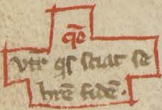 qo
utr qs sciat se
hre fidē.